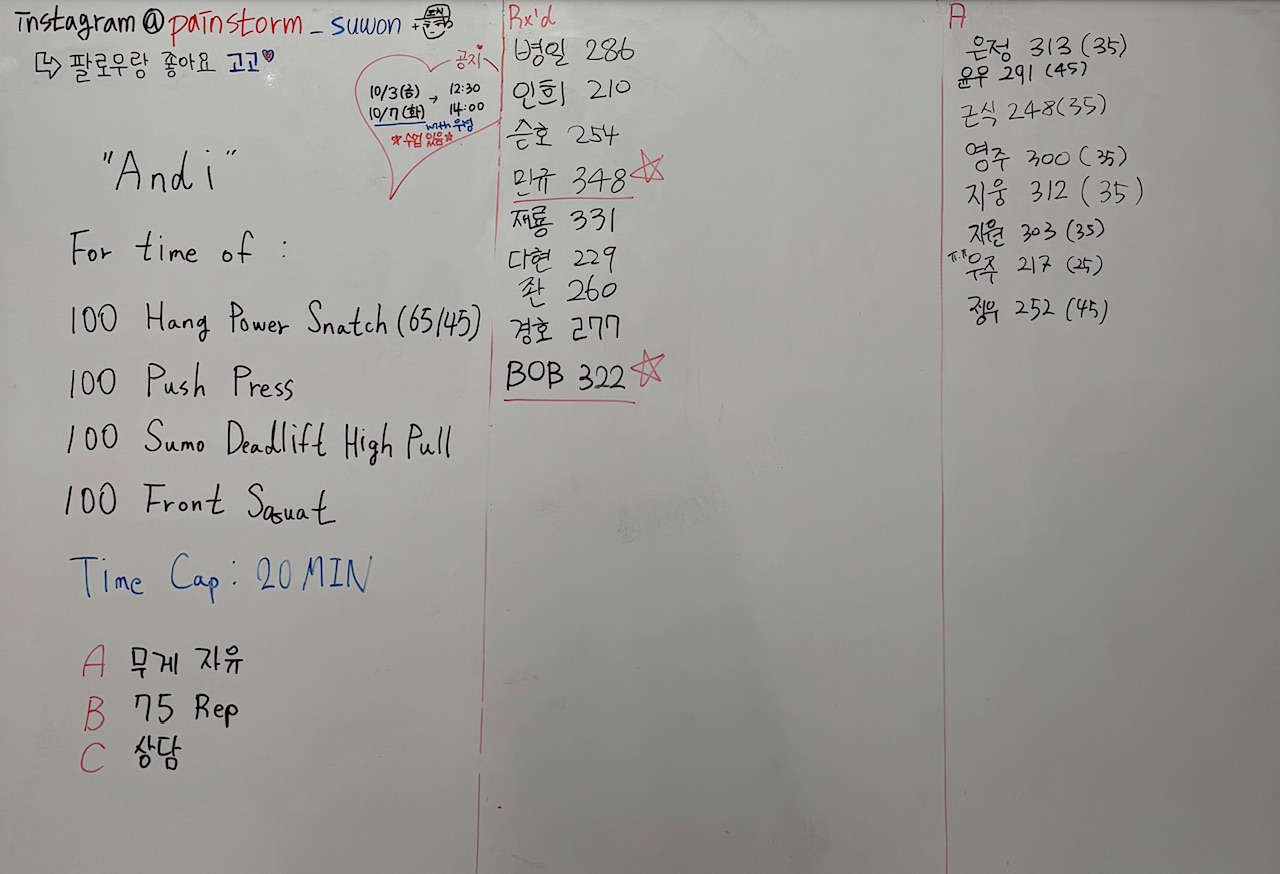 instagram@painstorm_suwon
↳ 팔로우랑 좋아요 고고♥
공지
10/3(금) → 12:30
10/7(화) 14:00
with 우정
☆수업 있음☆
"Andi"
For time of :
100 Hang Power Snatch (65/45)
100 Push Press
100 Sumo Deadlift High Pull
100 Front Sqsuat
Time Cap : 20 MIN
A 무게 자유
B 75 Rep
C 상담
Rx'd
병일 286
인희 210
승호 254
민규 348 ☆
재룡 331
다현 229
좐 260
경호 277
BOB 322 ☆
A
은정 313 (35)
윤우 291 (45)
근식 248 (35)
영주 300 (35)
지웅 312 (35)
지원 303 (35)
ㅠㅠ우주 217 (25)
정우 252 (45)